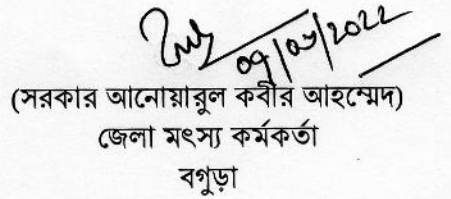 ০৭/০৩/2022
(সরকার আনোয়ারুল কবীর আহম্মেদ)
জেলা মৎস্য কর্মকর্তা
বগুড়া